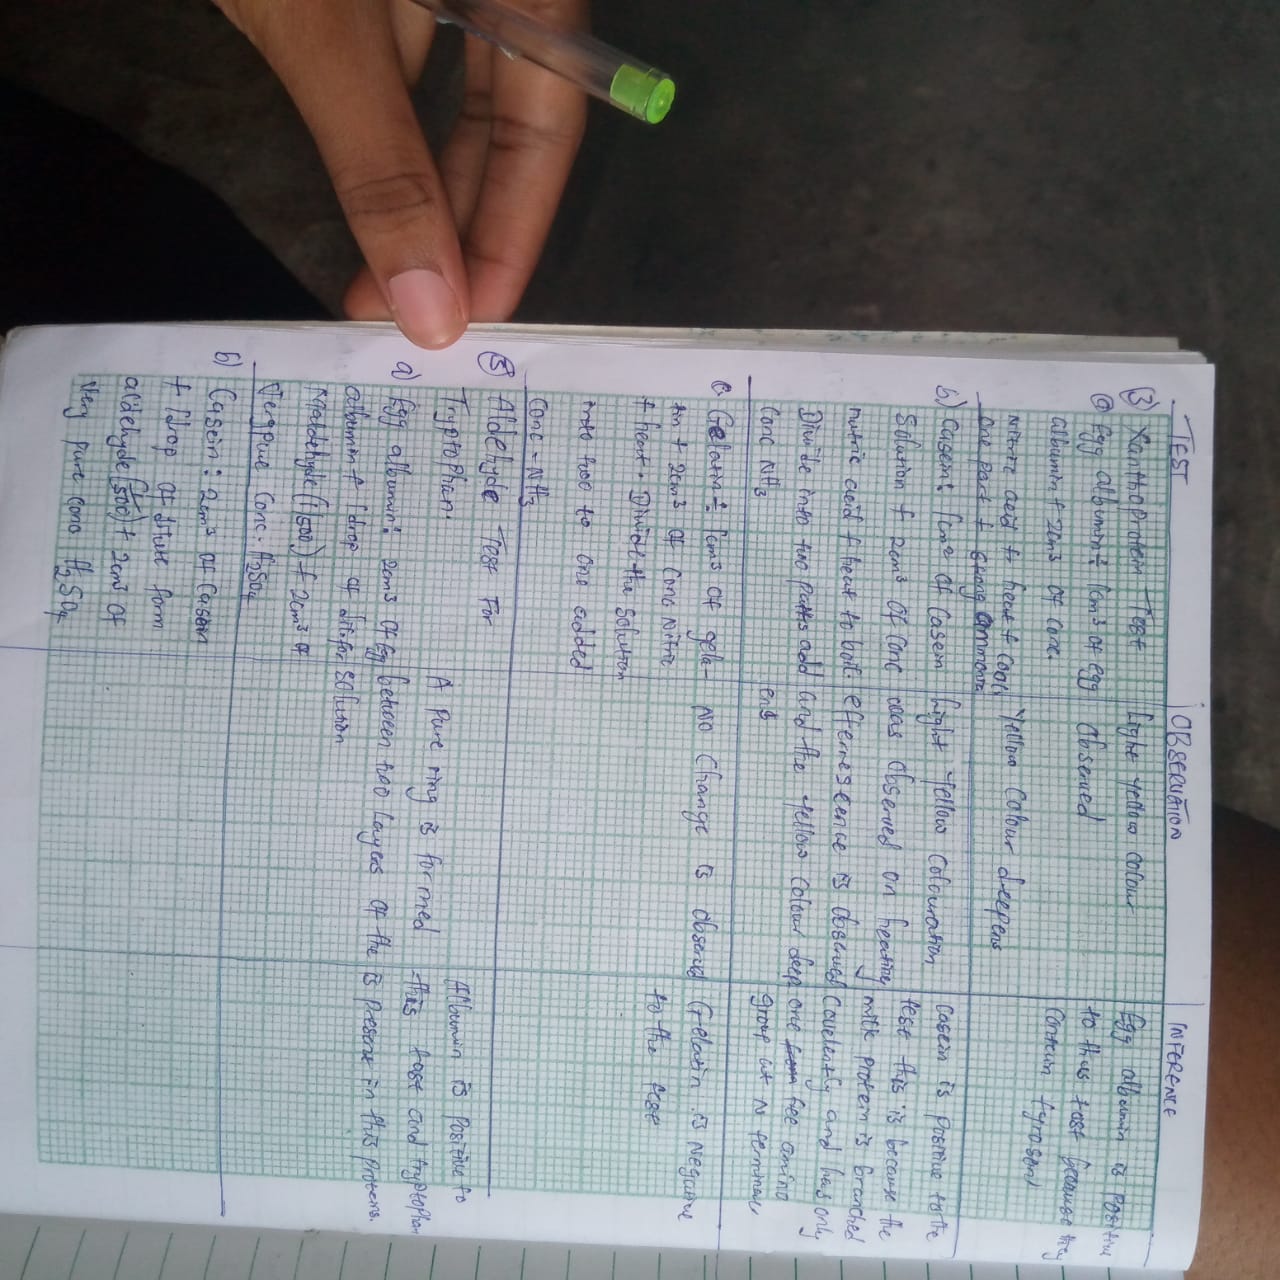 TEST OBSERVATION INFERENCE
(3) Xanthoprotein Test
(a) Egg albumin: 1cm3 of egg
albumin + 2cm3 of conc.
Nitric acid + heat + cool
one part + strong ammonia
Light yellow colour
Observed
Yellow colour deepens
Egg albumin is positive
to this test because they
contain tyrosent
b) Casein: 1cm2 of Casein
Solution + 2cm3 of conc
nutric acid + heat to boil.
Divide into two parts add
Conc NH3
Light yellow colouration
was observed on heating
efferrescence is observed
and the yellow colour deep
ens
Casein is positive to the
test this is because the
milk protein is branched
covelently and has only
one free amino
group at N terminal
c Gelatin: 1cm3 of gela-
tin + 2cm3 of conc Nitric
+ heat. Divide the solution
into two to one added
Conc - NH3
NO change is observed
Gelatin is Negative
to the test
(5) Aldehyde Test For
Tryptophan.
a) Egg albumin: 2cm3 of Egg
albumin + 1drop of dil. for
maldehyde (1/500) + 2cm3 of
Verypure Conc. H2SO4
A Pure ring is formed
between two layers of the
solution
Albumin is positive to
this test and tryptophan
is present in this proteins.
b) Casein: 2cm3 of Casein
+ 1drop of dilute form
aldehyde (1/500) + 2cm3 of
Very pure conc H2SO4